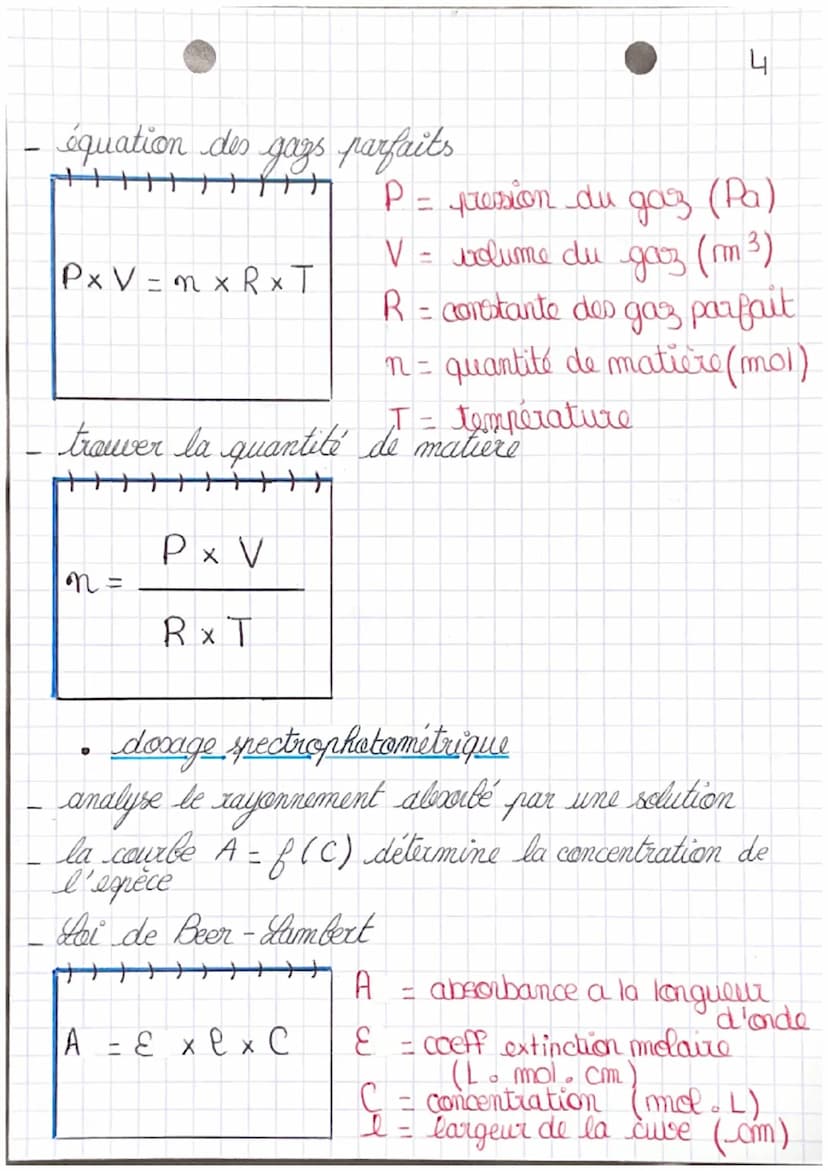 4
- équation des gazs parfaits
P x V = n x R x T
P = pression du gaz (Pa)
V = volume du gaz (m³)
R = constante des gaz parfait
n = quantité de matière (mol)
T = température
- trouver la quantité de matière
n = P x V
R x T
• dosage spectrophotométrique
- analyse le rayonnement absorbé par une solution
- la courbe A = f(C) détermine la concentration de
l'espèce
- Loi de Beer-Lambert
A = ε x l x C
A = absorbance a la longueur
d'onde
ε = coeff extinction molaire
(L. mol. cm)
C = concentration (mol. L)
l = largeur de la cuve (cm)